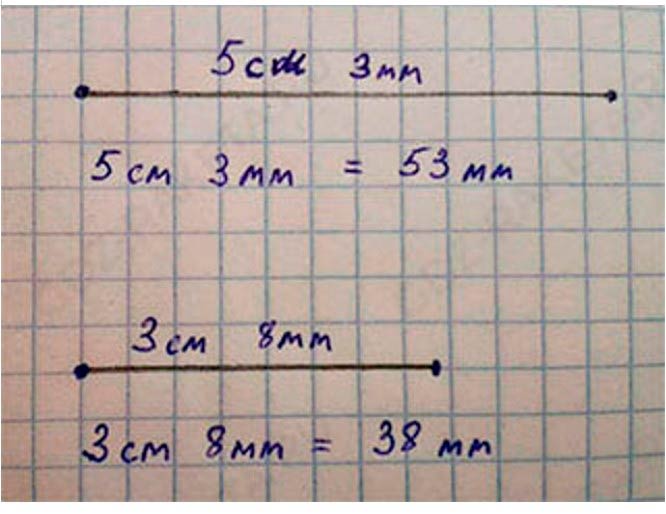 5 см 3 мм
5 см 3 мм = 53 мм
3 см 8 мм
3 см 8 мм = 38 мм